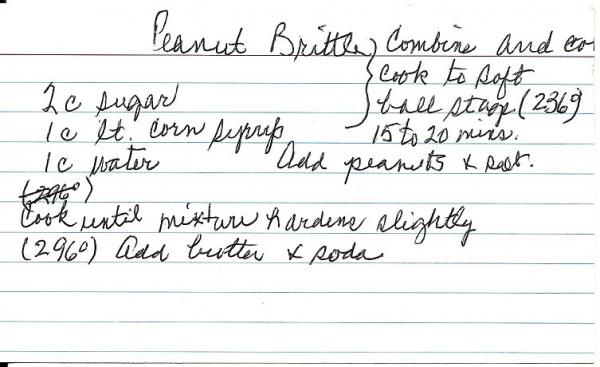 Peanut Brittle
2 c sugar
1 c lt. corn syrup
1 c water
} Combine and co
cook to soft
ball stage (236°)
15 to 20 mins.
Add peanuts & salt.
(296°)
Cook until mixture hardens slightly
(296°) Add butter & soda